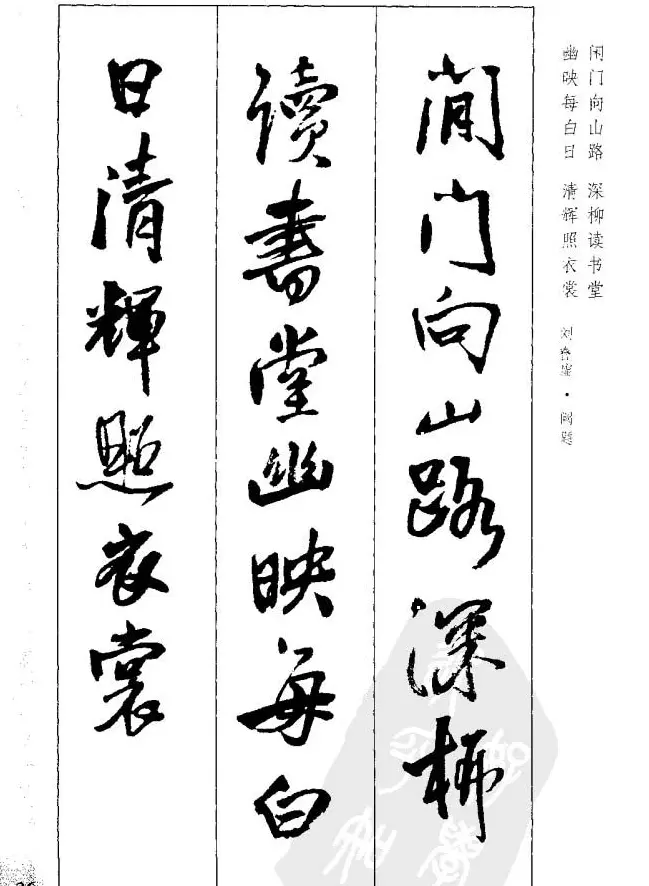 闲门向山路 深柳读书堂
幽映每白日 清辉照衣裳 刘眘虚·阙题
閒门向山路深柳
讀書堂幽映每白
日清輝照衣裳